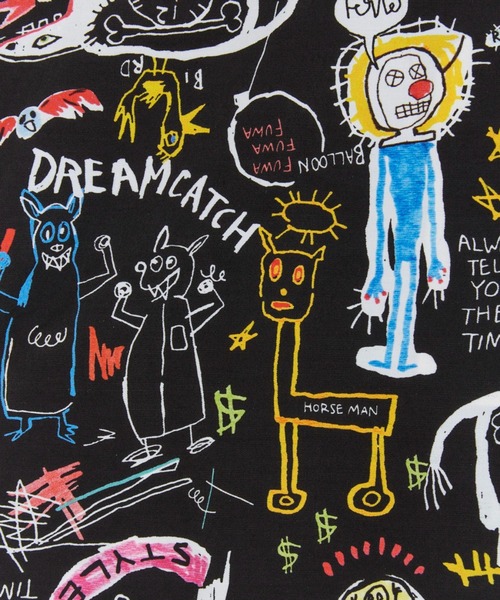 BI
RD
BALLOON
FUWA
FUWA
FUWA
DREAMCATCH
ALW
TEL
YO
THE
TIM
HORSE MAN
$
$
$
$
STYLE
TIN